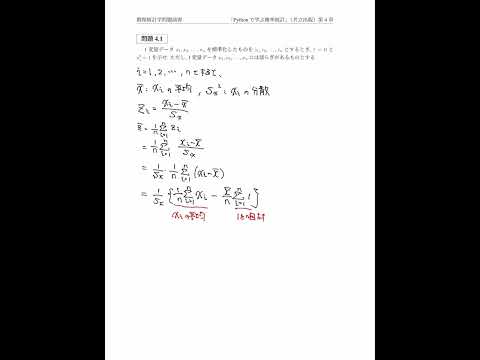 数理統計学問題演習 「Python で学ぶ確率統計」(共立出版) 第 4 章
問題 4.1
1 変量データ x₁, x₂, …, xₙ を標準化したものを z₁, z₂, …, zₙ とするとき, z̄ = 0 と
s_z² = 1 を示せ. ただし, 1 変量データ x₁, x₂, …, xₙ にはばらつきがあるものとする.
i=1, 2, …, n とすると、
x̄ : xᵢ の平均 , Sₓ² : xᵢ の分散
zᵢ = (xᵢ - x̄)/Sₓ
z̄ = 1/n Σ_{i=1}^{n} zᵢ
= 1/n Σ_{i=1}^{n} (xᵢ - x̄)/Sₓ
= 1/Sₓ · 1/n Σ_{i=1}^{n} (xᵢ - x̄)
= 1/Sₓ { 1/n Σ_{i=1}^{n} xᵢ - x̄/n Σ_{i=1}^{n} 1 }
xᵢ の平均 1をn回足す